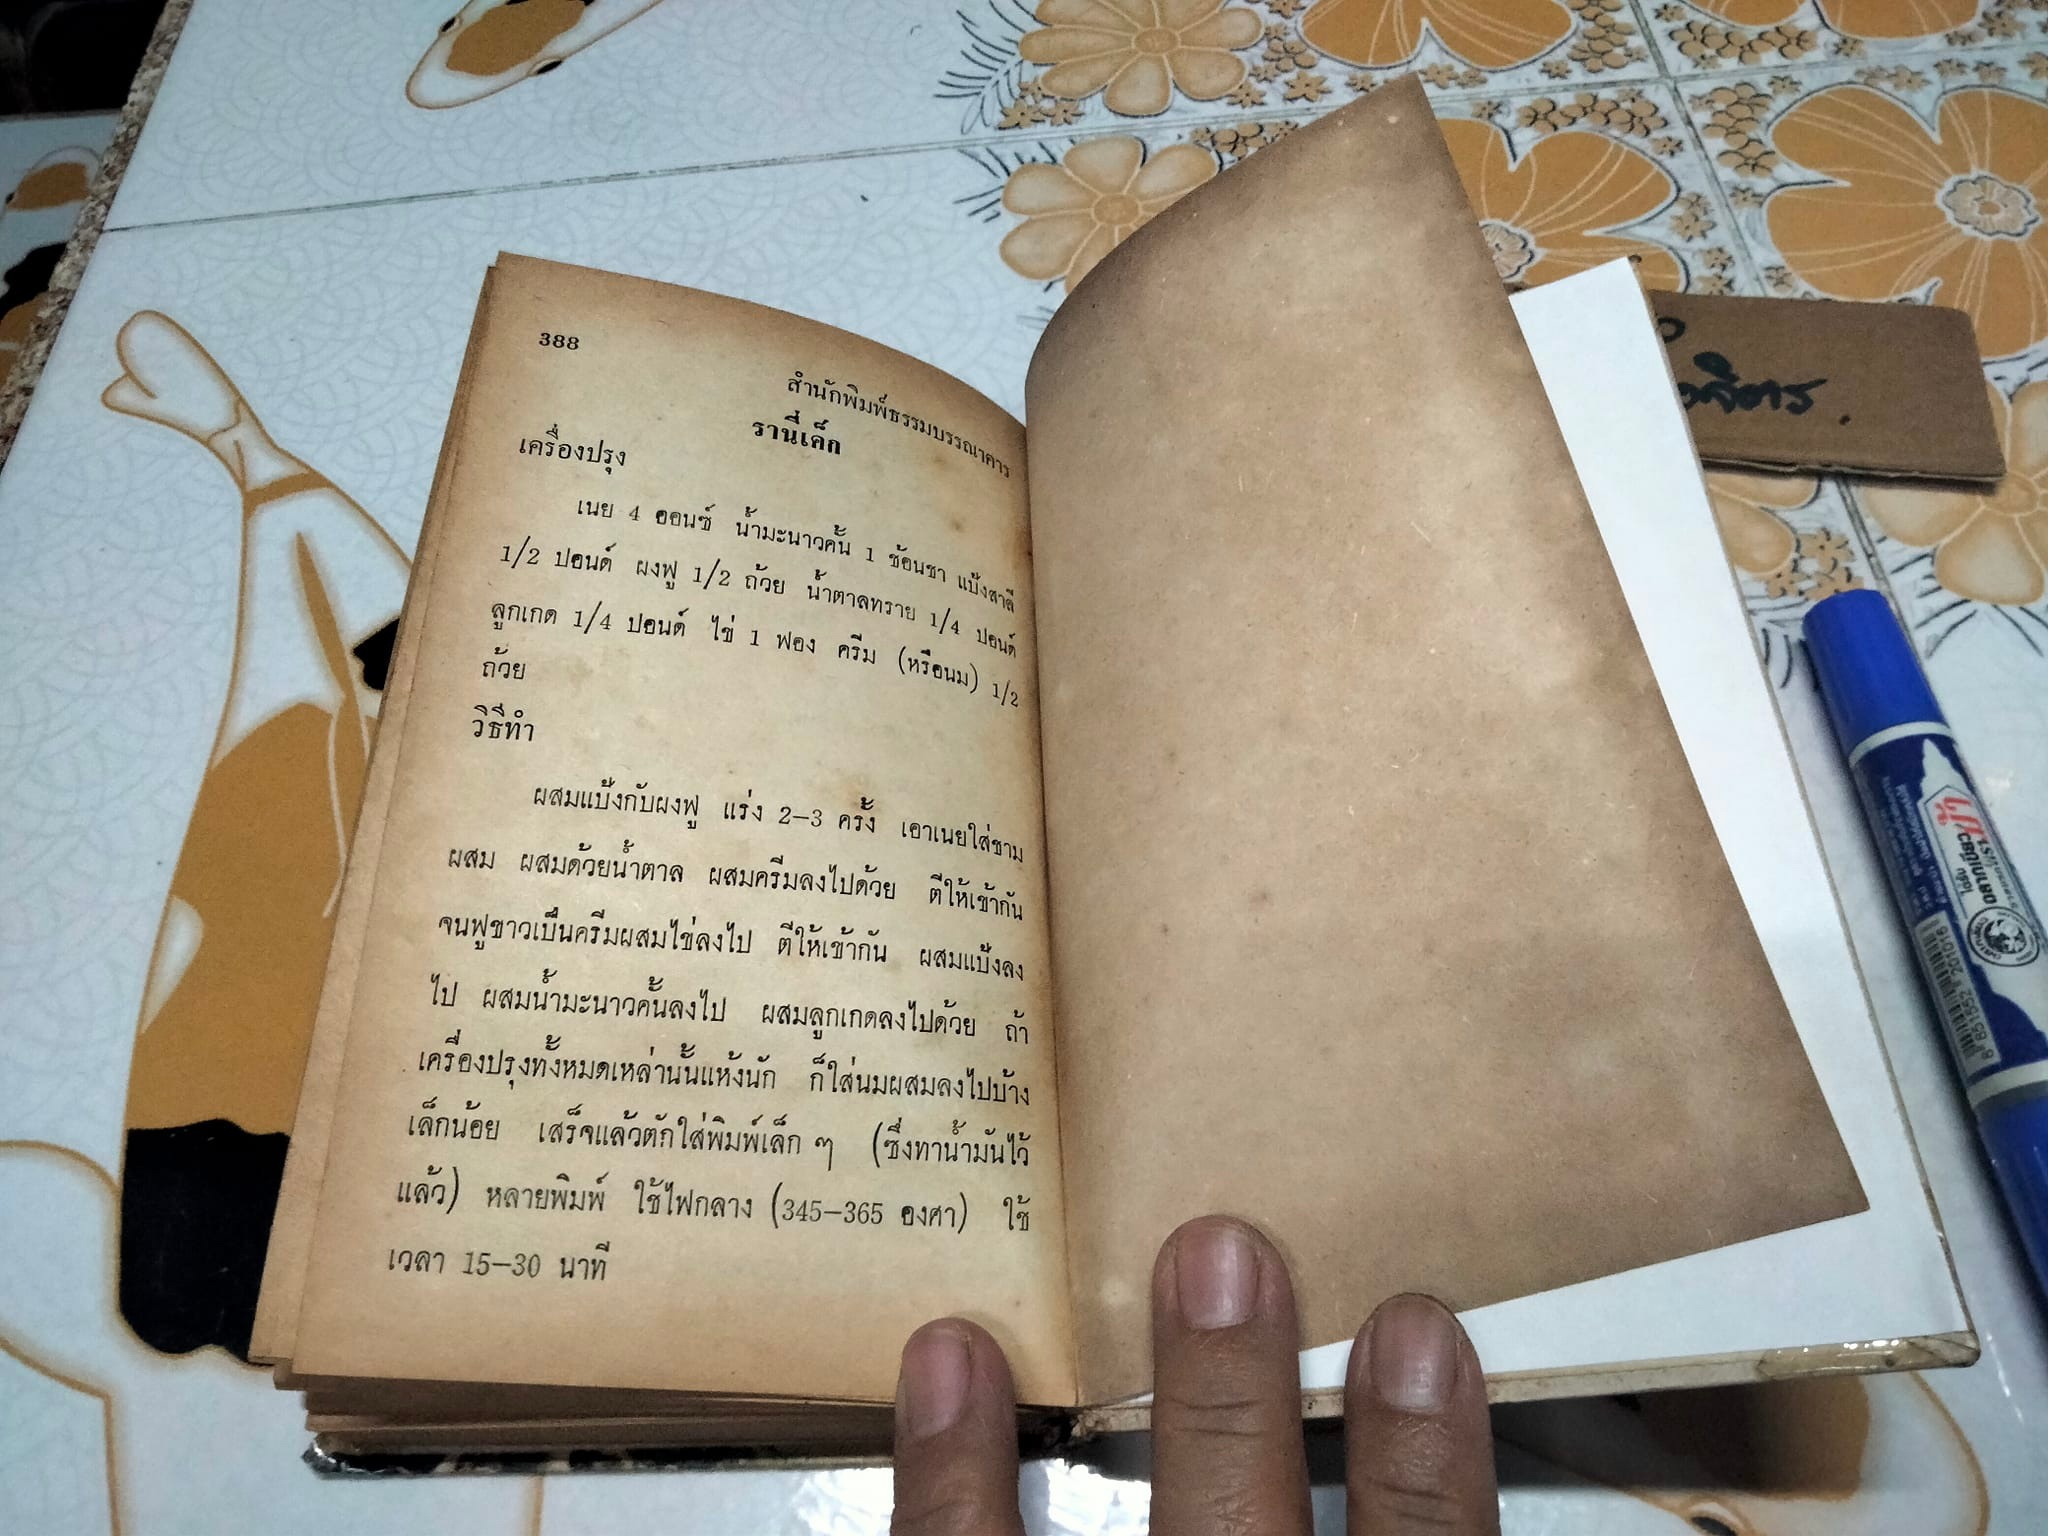 388
สำนักพิมพ์ธรรมบรรณาคาร
รานี่เค็ก
เครื่องปรุง
เนย 4 ออนซ์ น้ำมะนาวคั้น 1 ช้อนชา แป้งสาลี
1/2 ปอนด์ ผงฟู 1/2 ถ้วย น้ำตาลทราย 1/4 ปอนด์
ลูกเกด 1/4 ปอนด์ ไข่ 1 ฟอง ครีม (หรือนม) 1/2
ถ้วย
วิธีทำ
ผสมแป้งกับผงฟู แร่ง 2–3 ครั้ง เอาเนยใส่ชาม
ผสม ผสมด้วยน้ำตาล ผสมครีมลงไปด้วย ตีให้เข้ากัน
จนฟูขาวเป็นครีมผสมไข่ลงไป ตีให้เข้ากัน ผสมแป้งลง
ไป ผสมน้ำมะนาวคั้นลงไป ผสมลูกเกดลงไปด้วย ถ้า
เครื่องปรุงทั้งหมดเหล่านั้นแห้งนัก ก็ใส่นมผสมลงไปบ้าง
เล็กน้อย เสร็จแล้วตักใส่พิมพ์เล็ก ๆ (ซึ่งทาน้ำมันไว้
แล้ว) หลายพิมพ์ ใช้ไฟกลาง (345–365 องศา) ใช้
เวลา 15–30 นาที